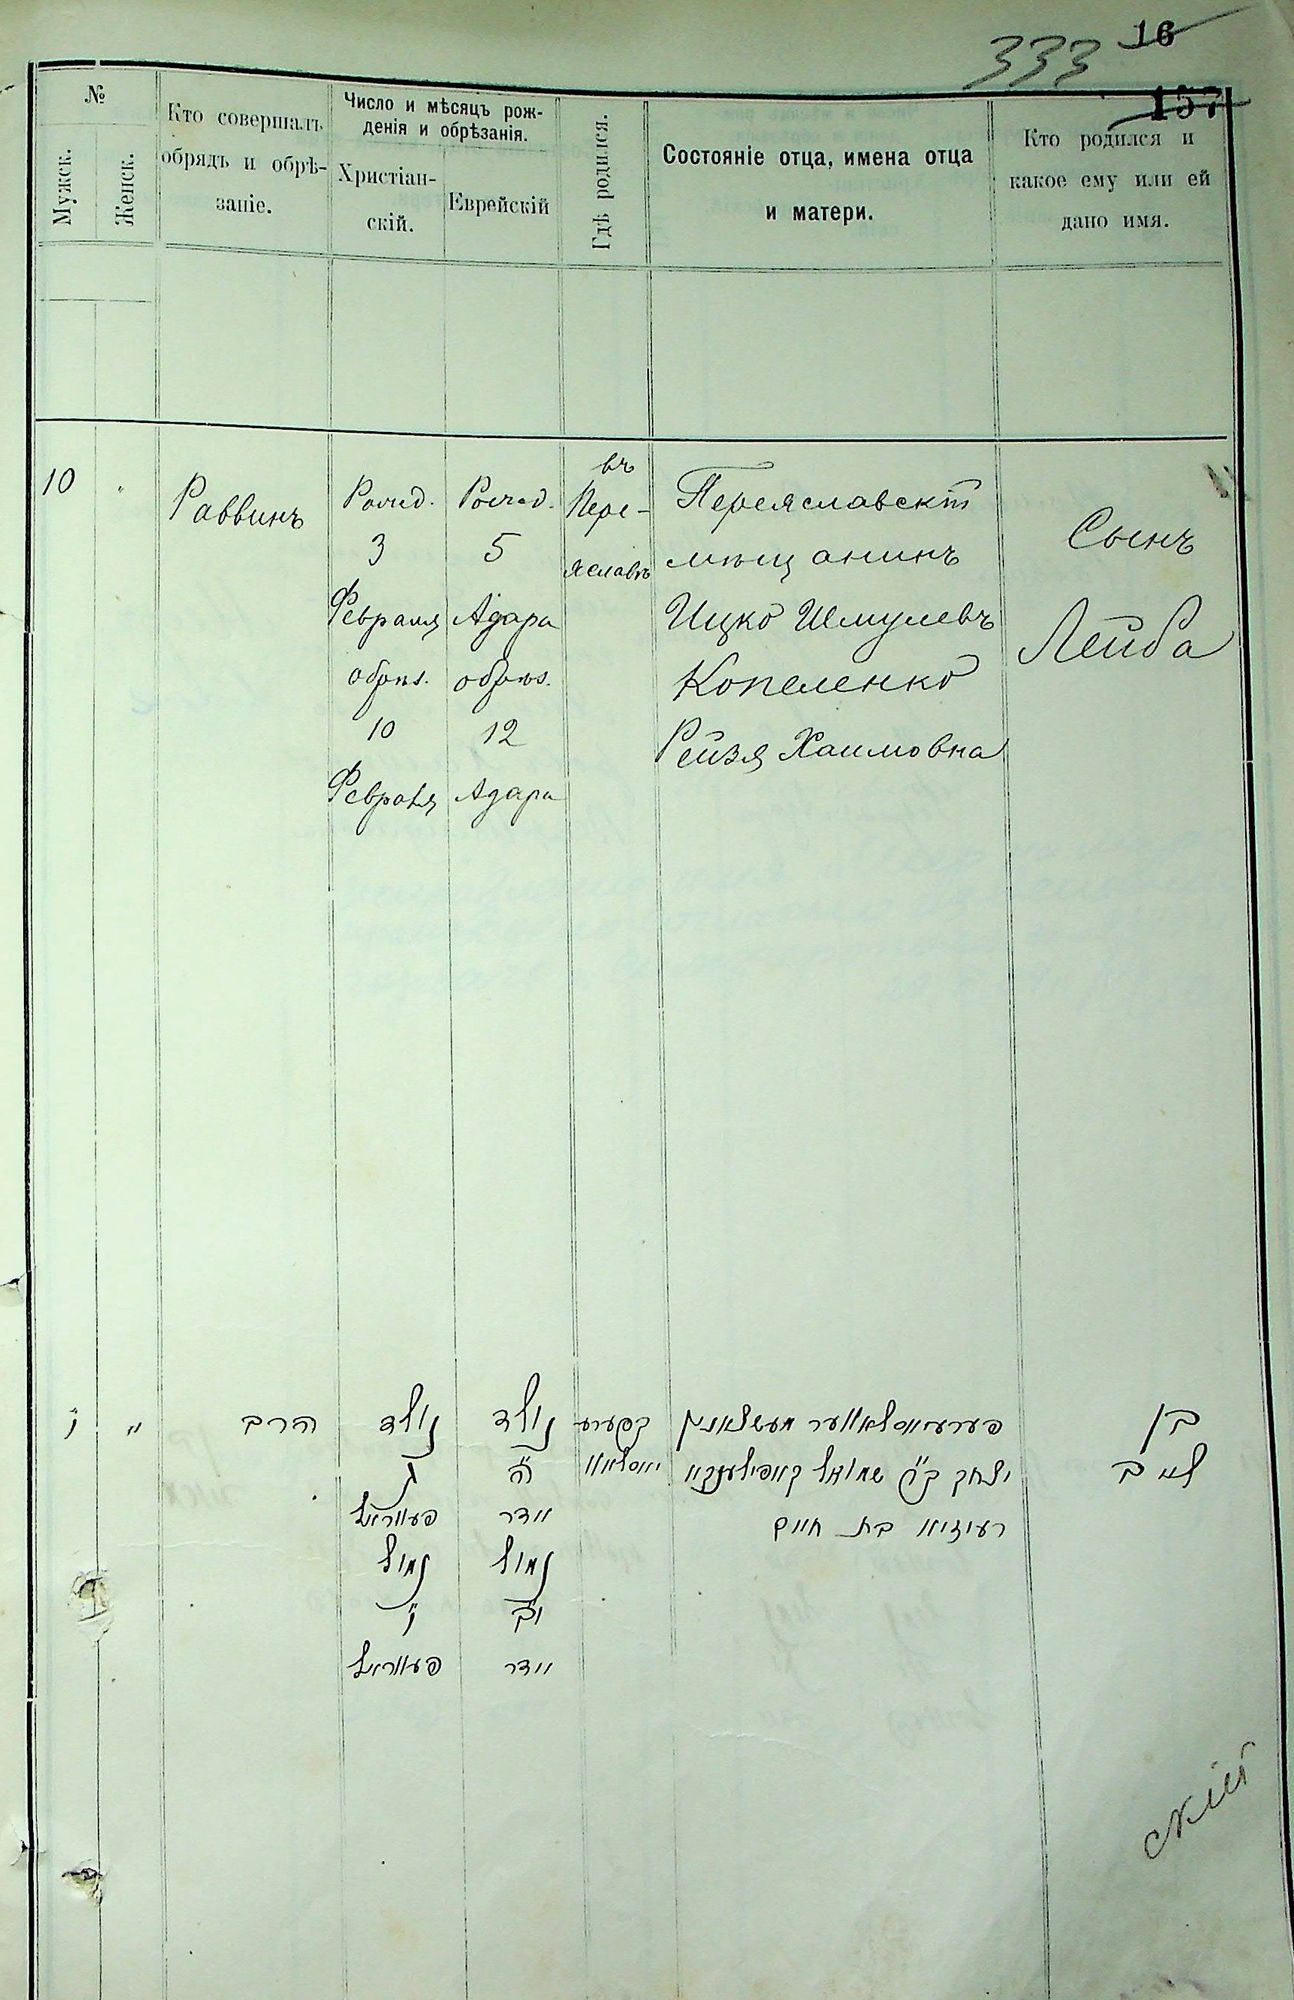 333 16
157
№
Мужск.
Женск.
Кто совершалъ
обрядъ и обрѣ-
заніе.
Число и мѣсяцъ рож-
денія и обрѣзанія.
Христіан-
скій.
Еврейскій
Гдѣ родился.
Состояніе отца, имена отца
и матери.
Кто родился и
какое ему или ей
дано имя.
10 "
Раввинъ
Рожд.
3
Февраля
обрѣз.
10
Февраля
Рожд.
5
Адара
обрѣз.
12
Адара
въ
Пере-
яславѣ
Переяславскій
мѣщанинъ
Ицко Шмулевъ
Копеленко
Рейзя Хаимовна
Сынъ
Лейба
י "
הרב
נולד
ג
פעווראל
נמול
י
פעווראל
נולד
ה
אדר
נמול
יב
אדר
בפערע
יאסלאוו
פערעיאסלאווער מעשצאנין
יצחק שמואל קאפילענקא
רעיזיא בת חיים
בן
לייב
скій